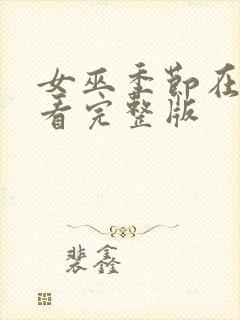 女巫季节在
看完整版
裴鑫